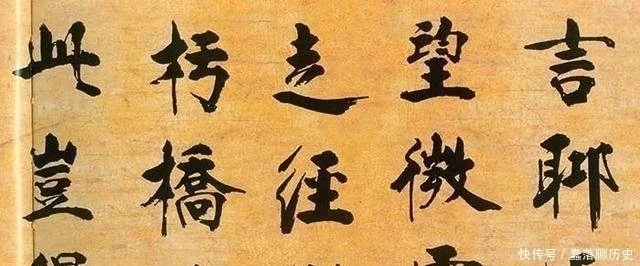 言耶
望微
走徑
朽橋
此豈
快传号／蠢落聊历史